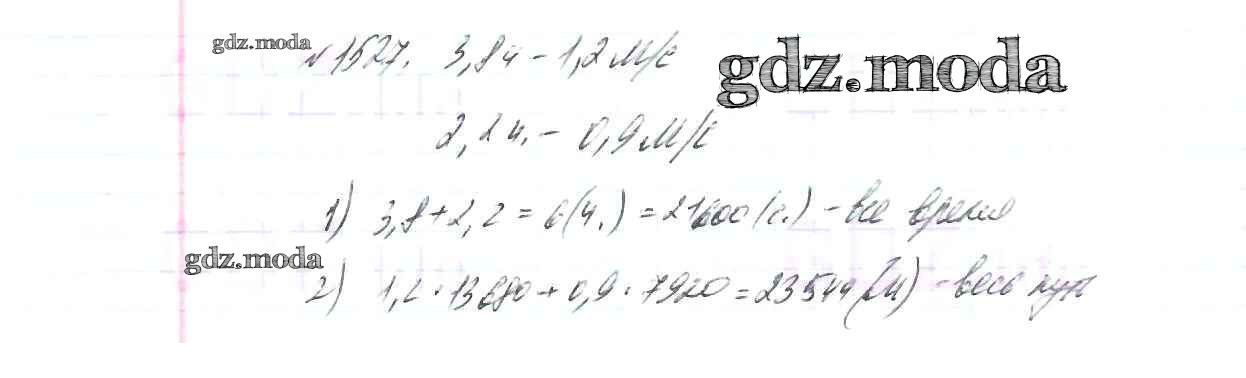 gdz.moda
№1527. 3,8ч – 1,2 м/с
gdz.moda
2,2ч. – 0,9 м/с
1) 3,8+2,2=6(ч.)=21600(с.) – все время
gdz.moda
2) 1,2·13680+0,9·7920=23544(м) – весь путь